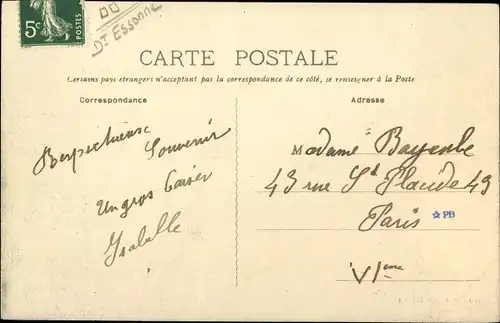 5c
POSTES
Dt Essonne
CARTE POSTALE
Certains pays etrangers n'acceptant pas la correspondance de ce côté, se renseigner à la Poste
Correspondance
Adresse
Respectueux
Souvenir
un gros baiser
Isabelle
Madame
43 rue St Placide 43
Paris
PB
VIeme